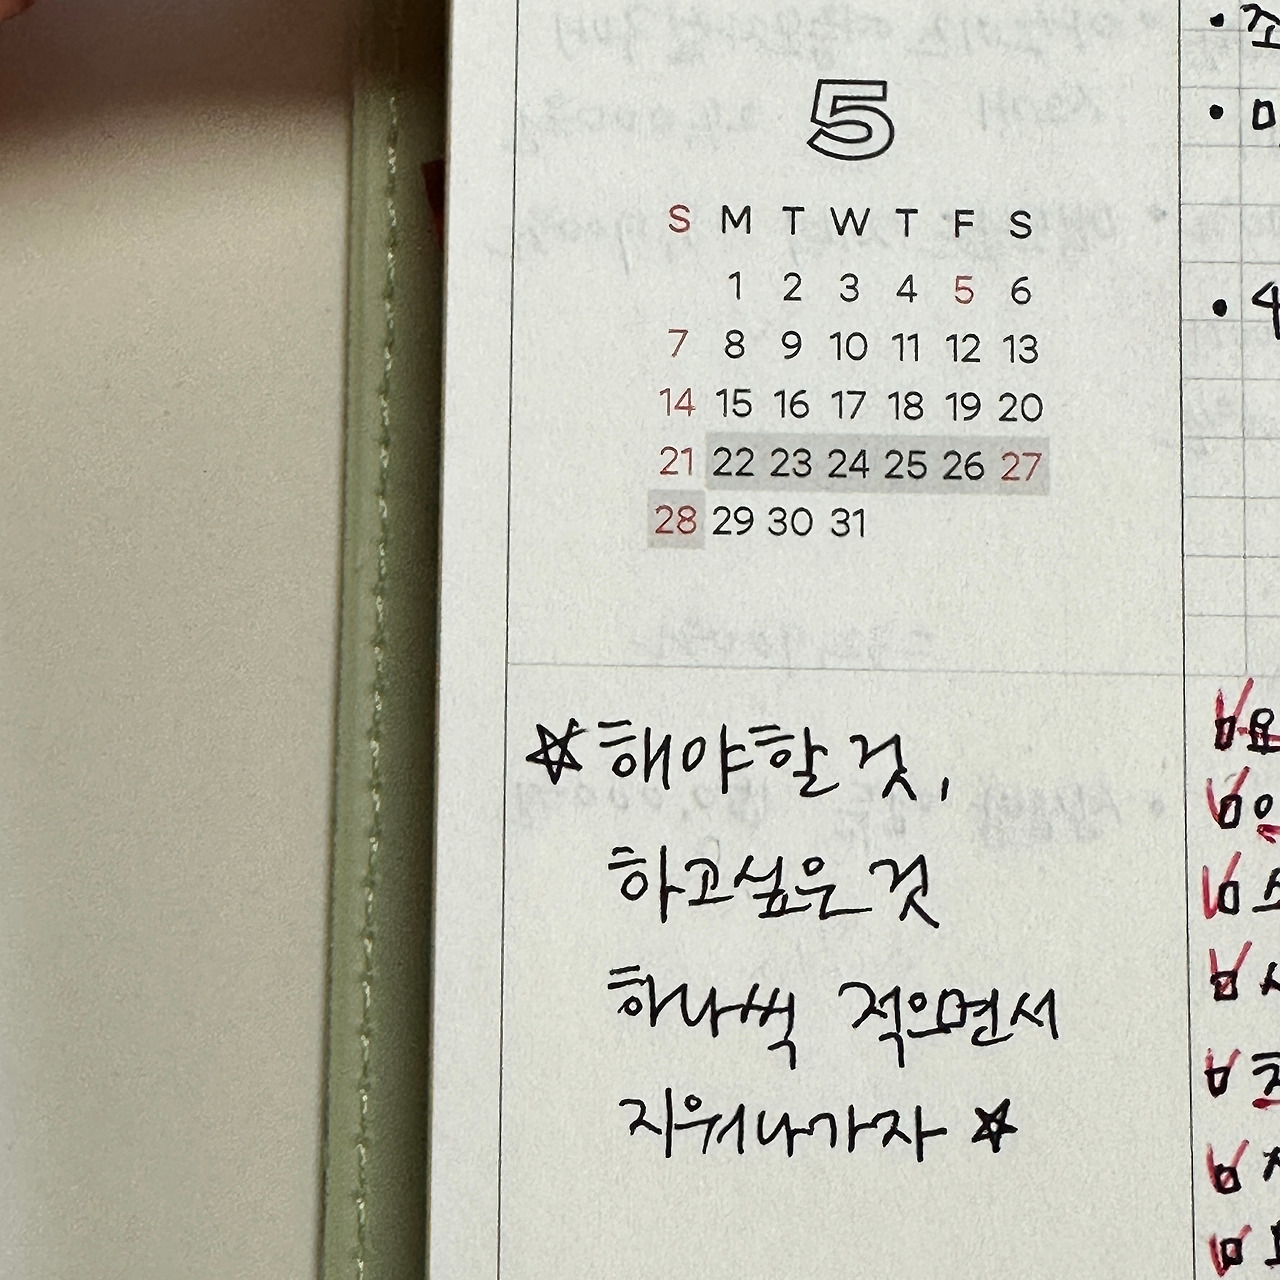 5
S M T W T F S
1 2 3 4 5 6
7 8 9 10 11 12 13
14 15 16 17 18 19 20
21 22 23 24 25 26 27
28 29 30 31
☆해야할 것,
하고싶은 것
하나씩 적으면서
지워나가자☆